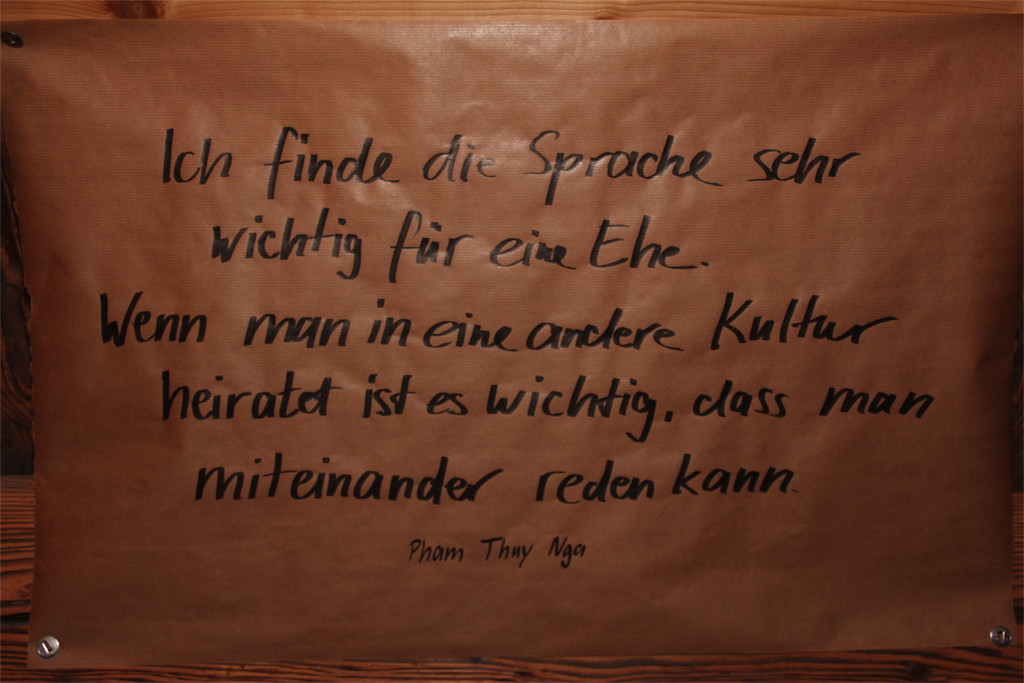 Ich finde die Sprache sehr
wichtig für eine Ehe.
Wenn man in eine andere Kultur
heiratet ist es wichtig, dass man
miteinander reden kann.
Pham Thuy Nga